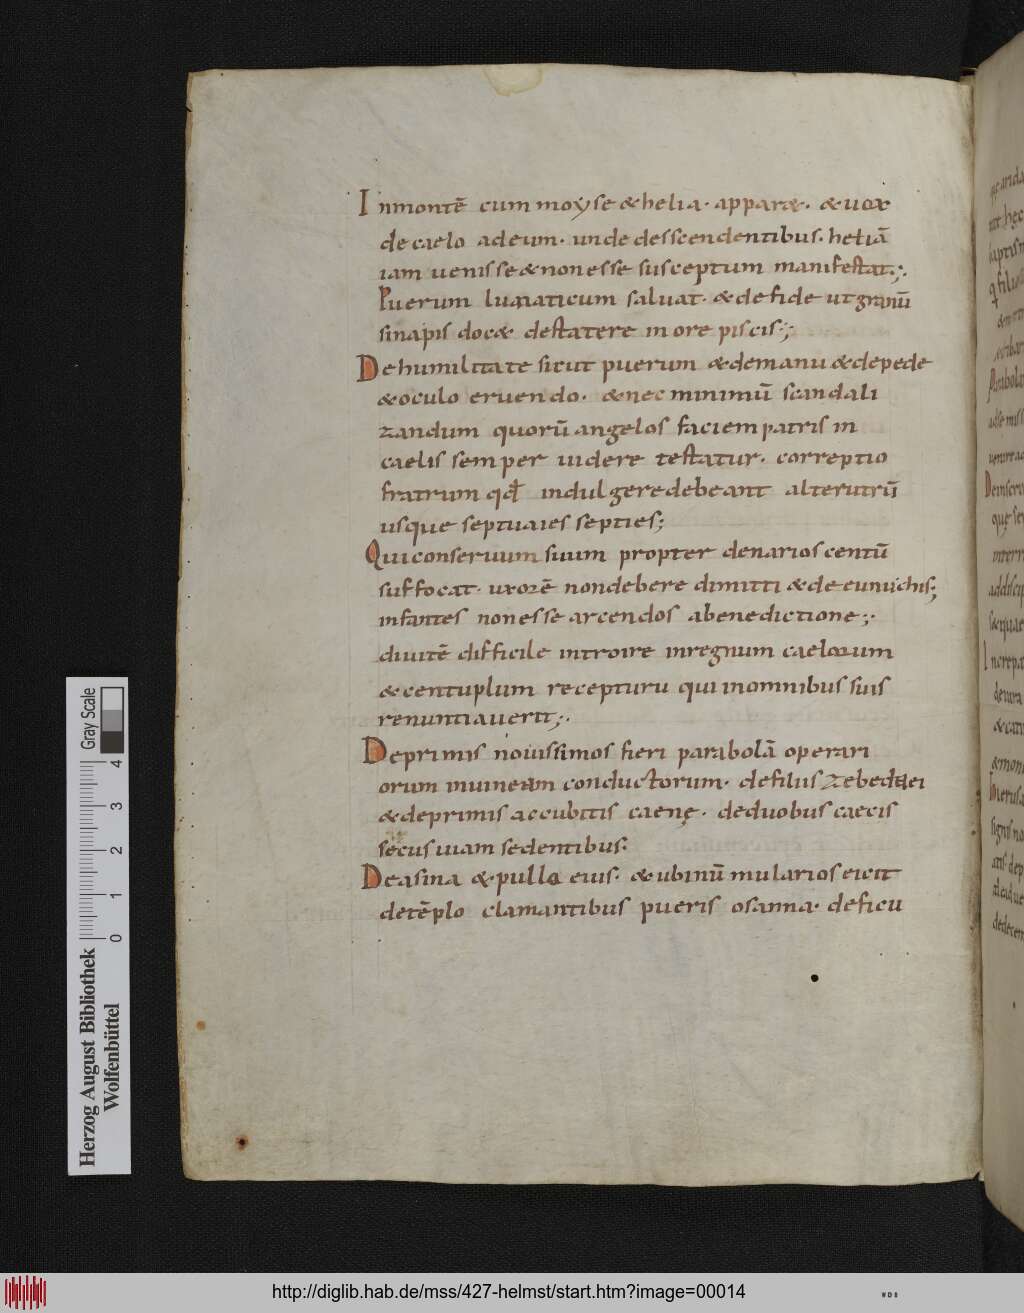 Inmontē cum moyse & helia· apparæ· & uox
de caelo adeum· unde desscendentibus· heliā
iam uenisse & nonesse susceptum manifestat;·
Puerum lunaticum saluat· & de fide ut granū
sinapis doc& destatere in ore piscis·;
Dehumilitate sicut puerum & demanu & depede
& oculo eruendo· & nec minimū scandali
zandum quorū angelos faciem patris in
caelis semper uidere testatur· correptio
fratrum qđ indulgere debeant alterutrū
usque septuaies septies;
Qui conseruum suum propter denarios centū
suffocat· uxorē non debere dimitti & de eunuchis·;
infantes non esse arcendos abenedictione;·
diuitē difficile introire inregnum caelorum
& centuplum recepturu qui inomnibus suis
renuntiauerit;·
Deprimis nouissimos fieri parabolā operari
orum inuineam conductorum· defiliis Zebedaei
& deprimis accubitis caenę· deduobus caecis
secus uiam sedentibus:
Deasina & pullo eius· & ubinūmularios eicit
detēplo clamantibus pueris osanna· deficu
Herzog August Bibliothek
Wolfenbüttel
Gray Scale
0 1 2 3 4
http://diglib.hab.de/mss/427-helmst/start.htm?image=00014